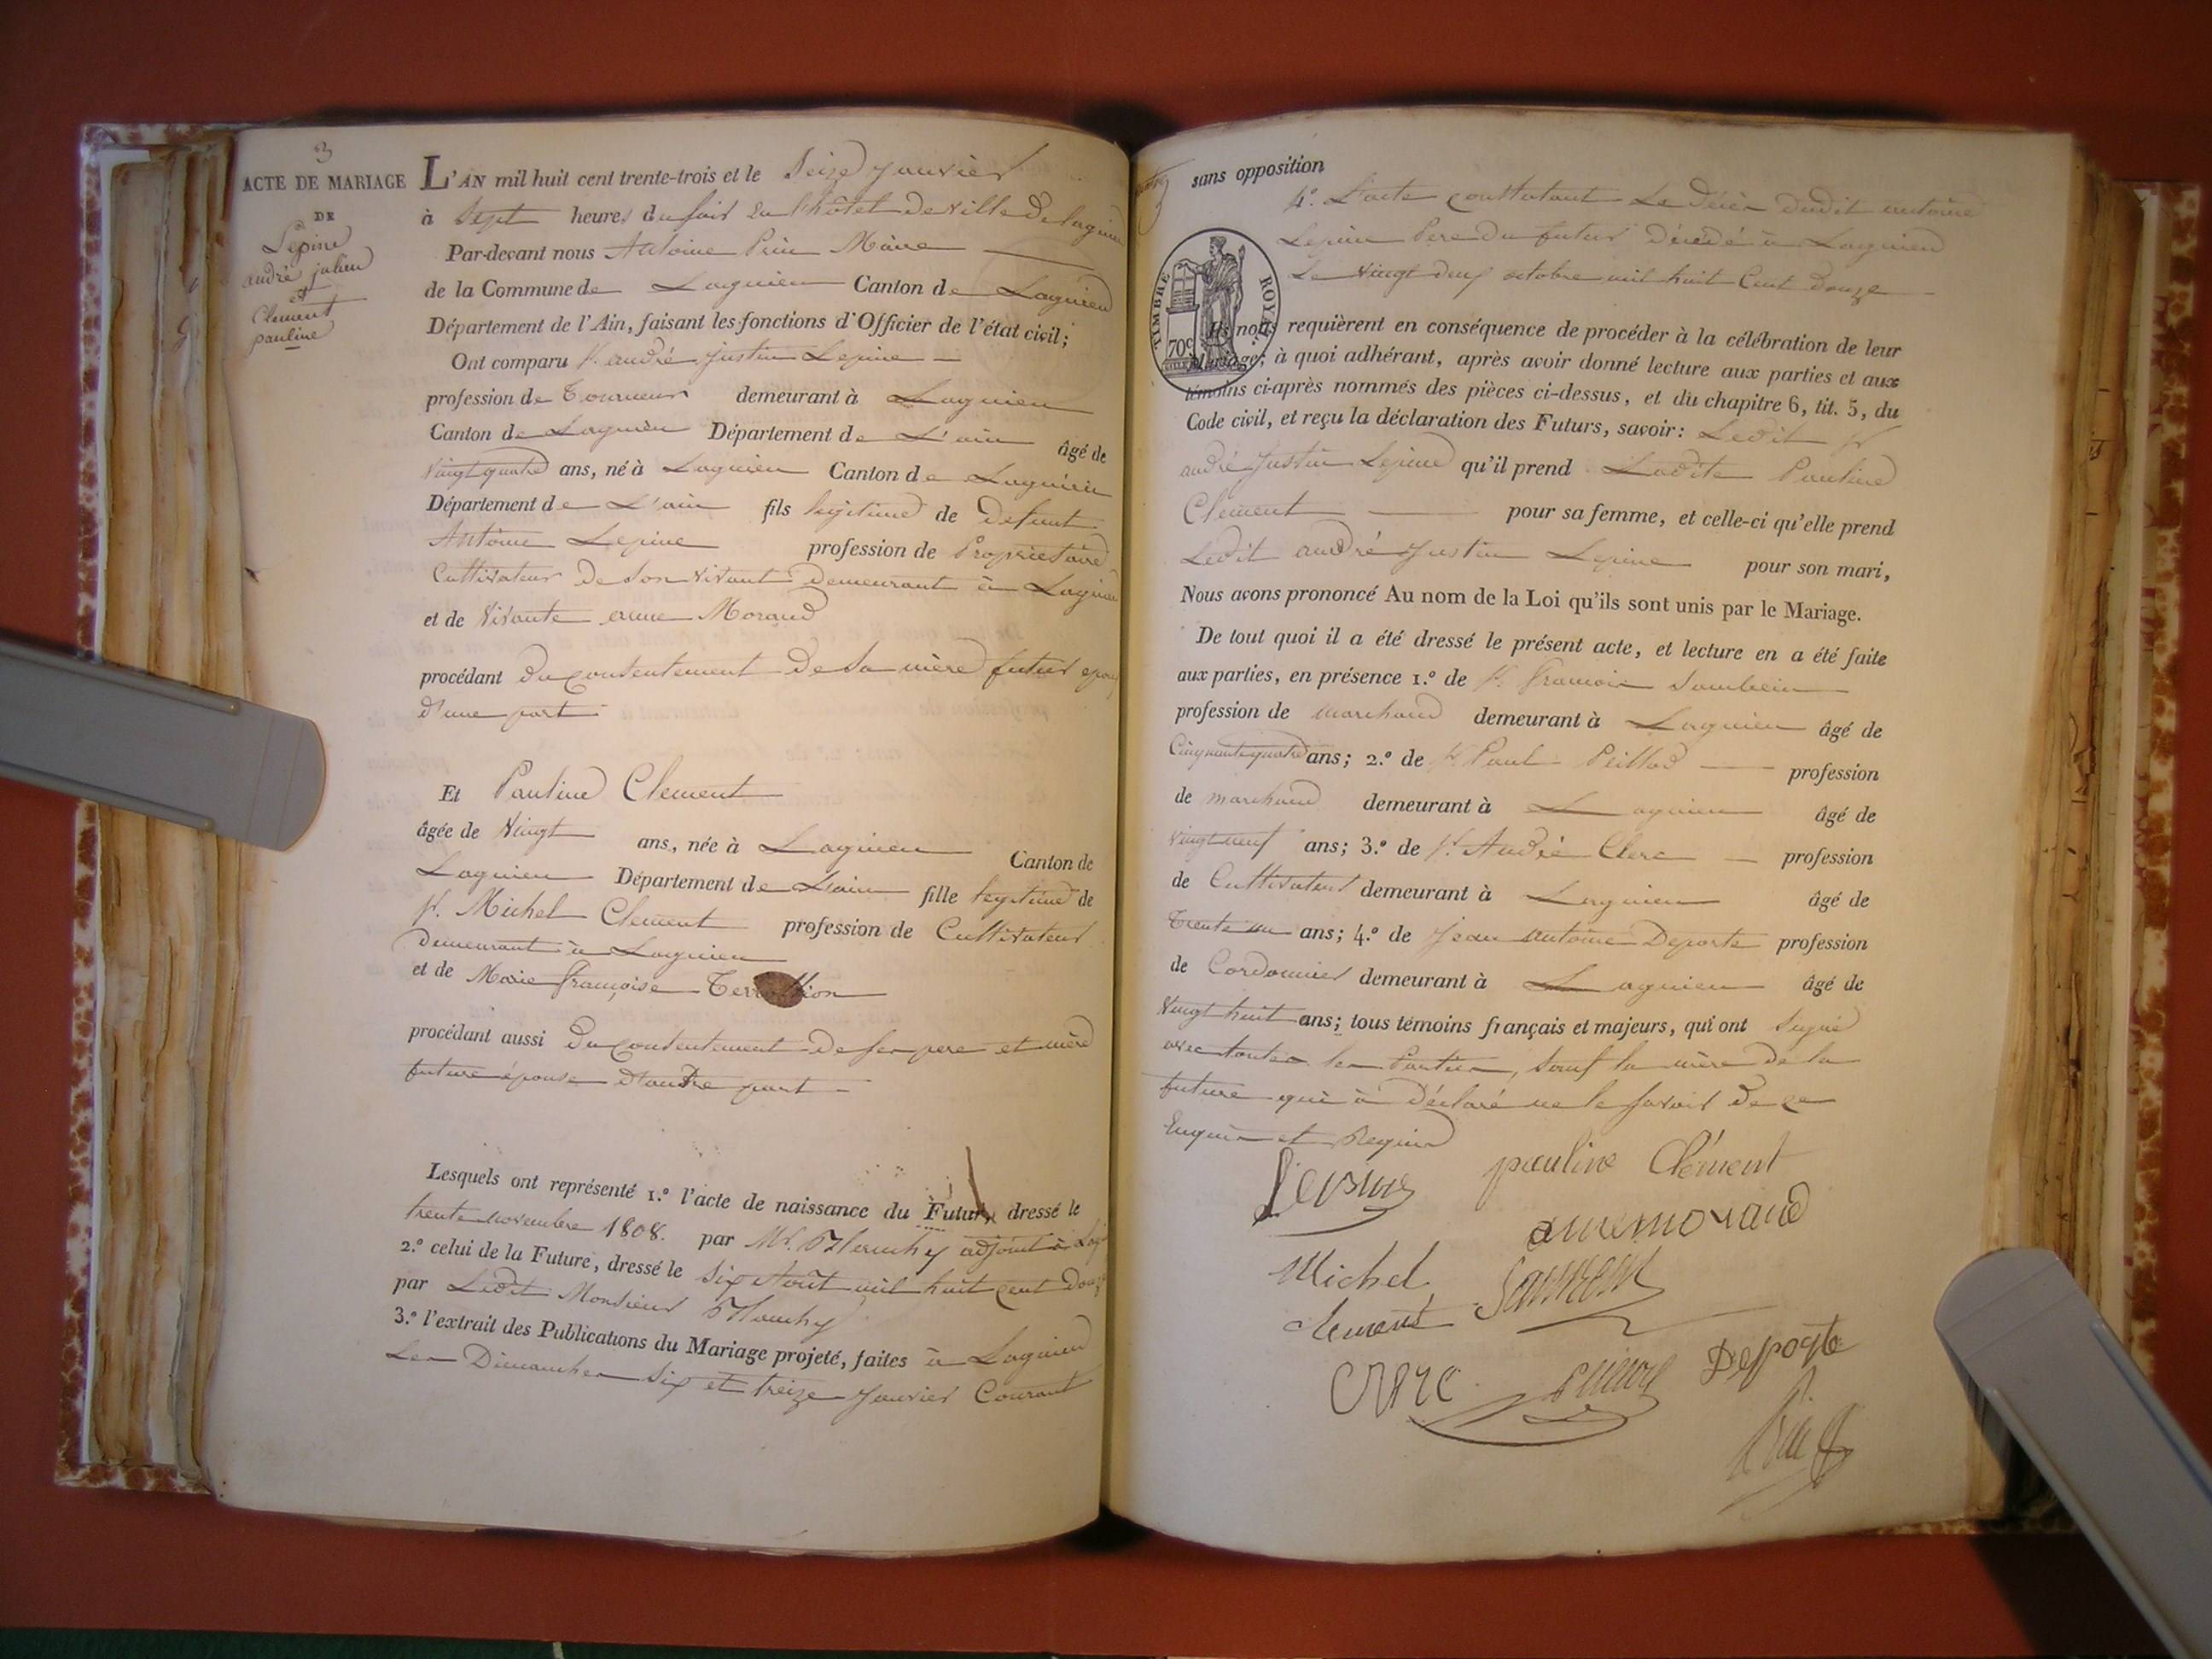 3
ACTE DE MARIAGE
DE
Lépine
andré julien
et
Clement
pauline
L'AN mil huit cent trente-trois et le Seize janvier
à Sept heures du soir en l'hôtel de ville de lagnieu
Par-devant nous Antoine Maire
de la Commune de Lagnieu Canton de Lagnieu
Département de l'Ain, faisant les fonctions d'Officier de l'état civil;
Ont comparu Sr. andré justin Lepine
profession de Tourneur demeurant à Lagnieu
Canton de Lagnieu Département de L'ain âgé de
vingt quatre ans, né à Lagnieu Canton de Lagnieu
Département de L'ain fils légitime de defunt
Antoine Lepine profession de Proprietaire
Cultivateur de son vivant demeurant à Lagnieu
et de vivante anne Morand
procédant du consentement de sa mère futur epoux
d'une part
Et Pauline Clement
âgée de vingt ans, née à Lagnieu Canton de
Lagnieu Département de L'ain fille légitime de
Sr. Michel Clement profession de Cultivateur
demeurant à Lagnieu
et de Marie françoise
procédant aussi du consentement de ses pere et mère
future épouse d'autre part
Lesquels ont représenté 1.º l'acte de naissance du Futur, dressé le
trente novembre 1808. par Mr. adjoint à
2.º celui de la Future, dressé le six Août mil huit cent douze
par Ledit Monsieur
3.º l'extrait des Publications du Mariage projeté, faites à Lagnieu
Les Dimanches six et treize janvier Courant
sans opposition
4.º L'acte constatant Le décès dudit antoine
Lepine Pere du futur décédé à Lagnieu
Le vingt deux octobre mil huit Cent douze
TIMBRE ROYAL
70c
Ils nous requièrent en conséquence de procéder à la célébration de leur
Mariage; à quoi adhérant, après avoir donné lecture aux parties et aux
témoins ci-après nommés des pièces ci-dessus, et du chapitre 6, tit. 5, du
Code civil, et reçu la déclaration des Futurs, savoir: Ledit Sr
andré justin Lepine qu'il prend Ladite Pauline
Clement pour sa femme, et celle-ci qu'elle prend
Ledit andré justin Lepine pour son mari,
Nous avons prononcé Au nom de la Loi qu'ils sont unis par le Mariage.
De tout quoi il a été dressé le présent acte, et lecture en a été faite
aux parties, en présence 1.º de Sr. françois
profession de marchand demeurant à Lagnieu âgé de
Cinquante quatre ans; 2.º de Sr Paul profession
de marchand demeurant à Lagnieu âgé de
vingt neuf ans; 3.º de Sr. André Clerc profession
de Cultivateur demeurant à Lagnieu âgé de
Trente un ans; 4.º de jean antoine Deporte profession
de Cordonnier demeurant à Lagnieu âgé de
vingt huit ans; tous témoins français et majeurs, qui ont signé
avec toutes les Parties, sauf la mère de la
future qui a déclaré ne le savoir de ce
Enquis et Requis
Lepine
pauline Clément
anne morand
Michel
clement
Clerc
Deporte